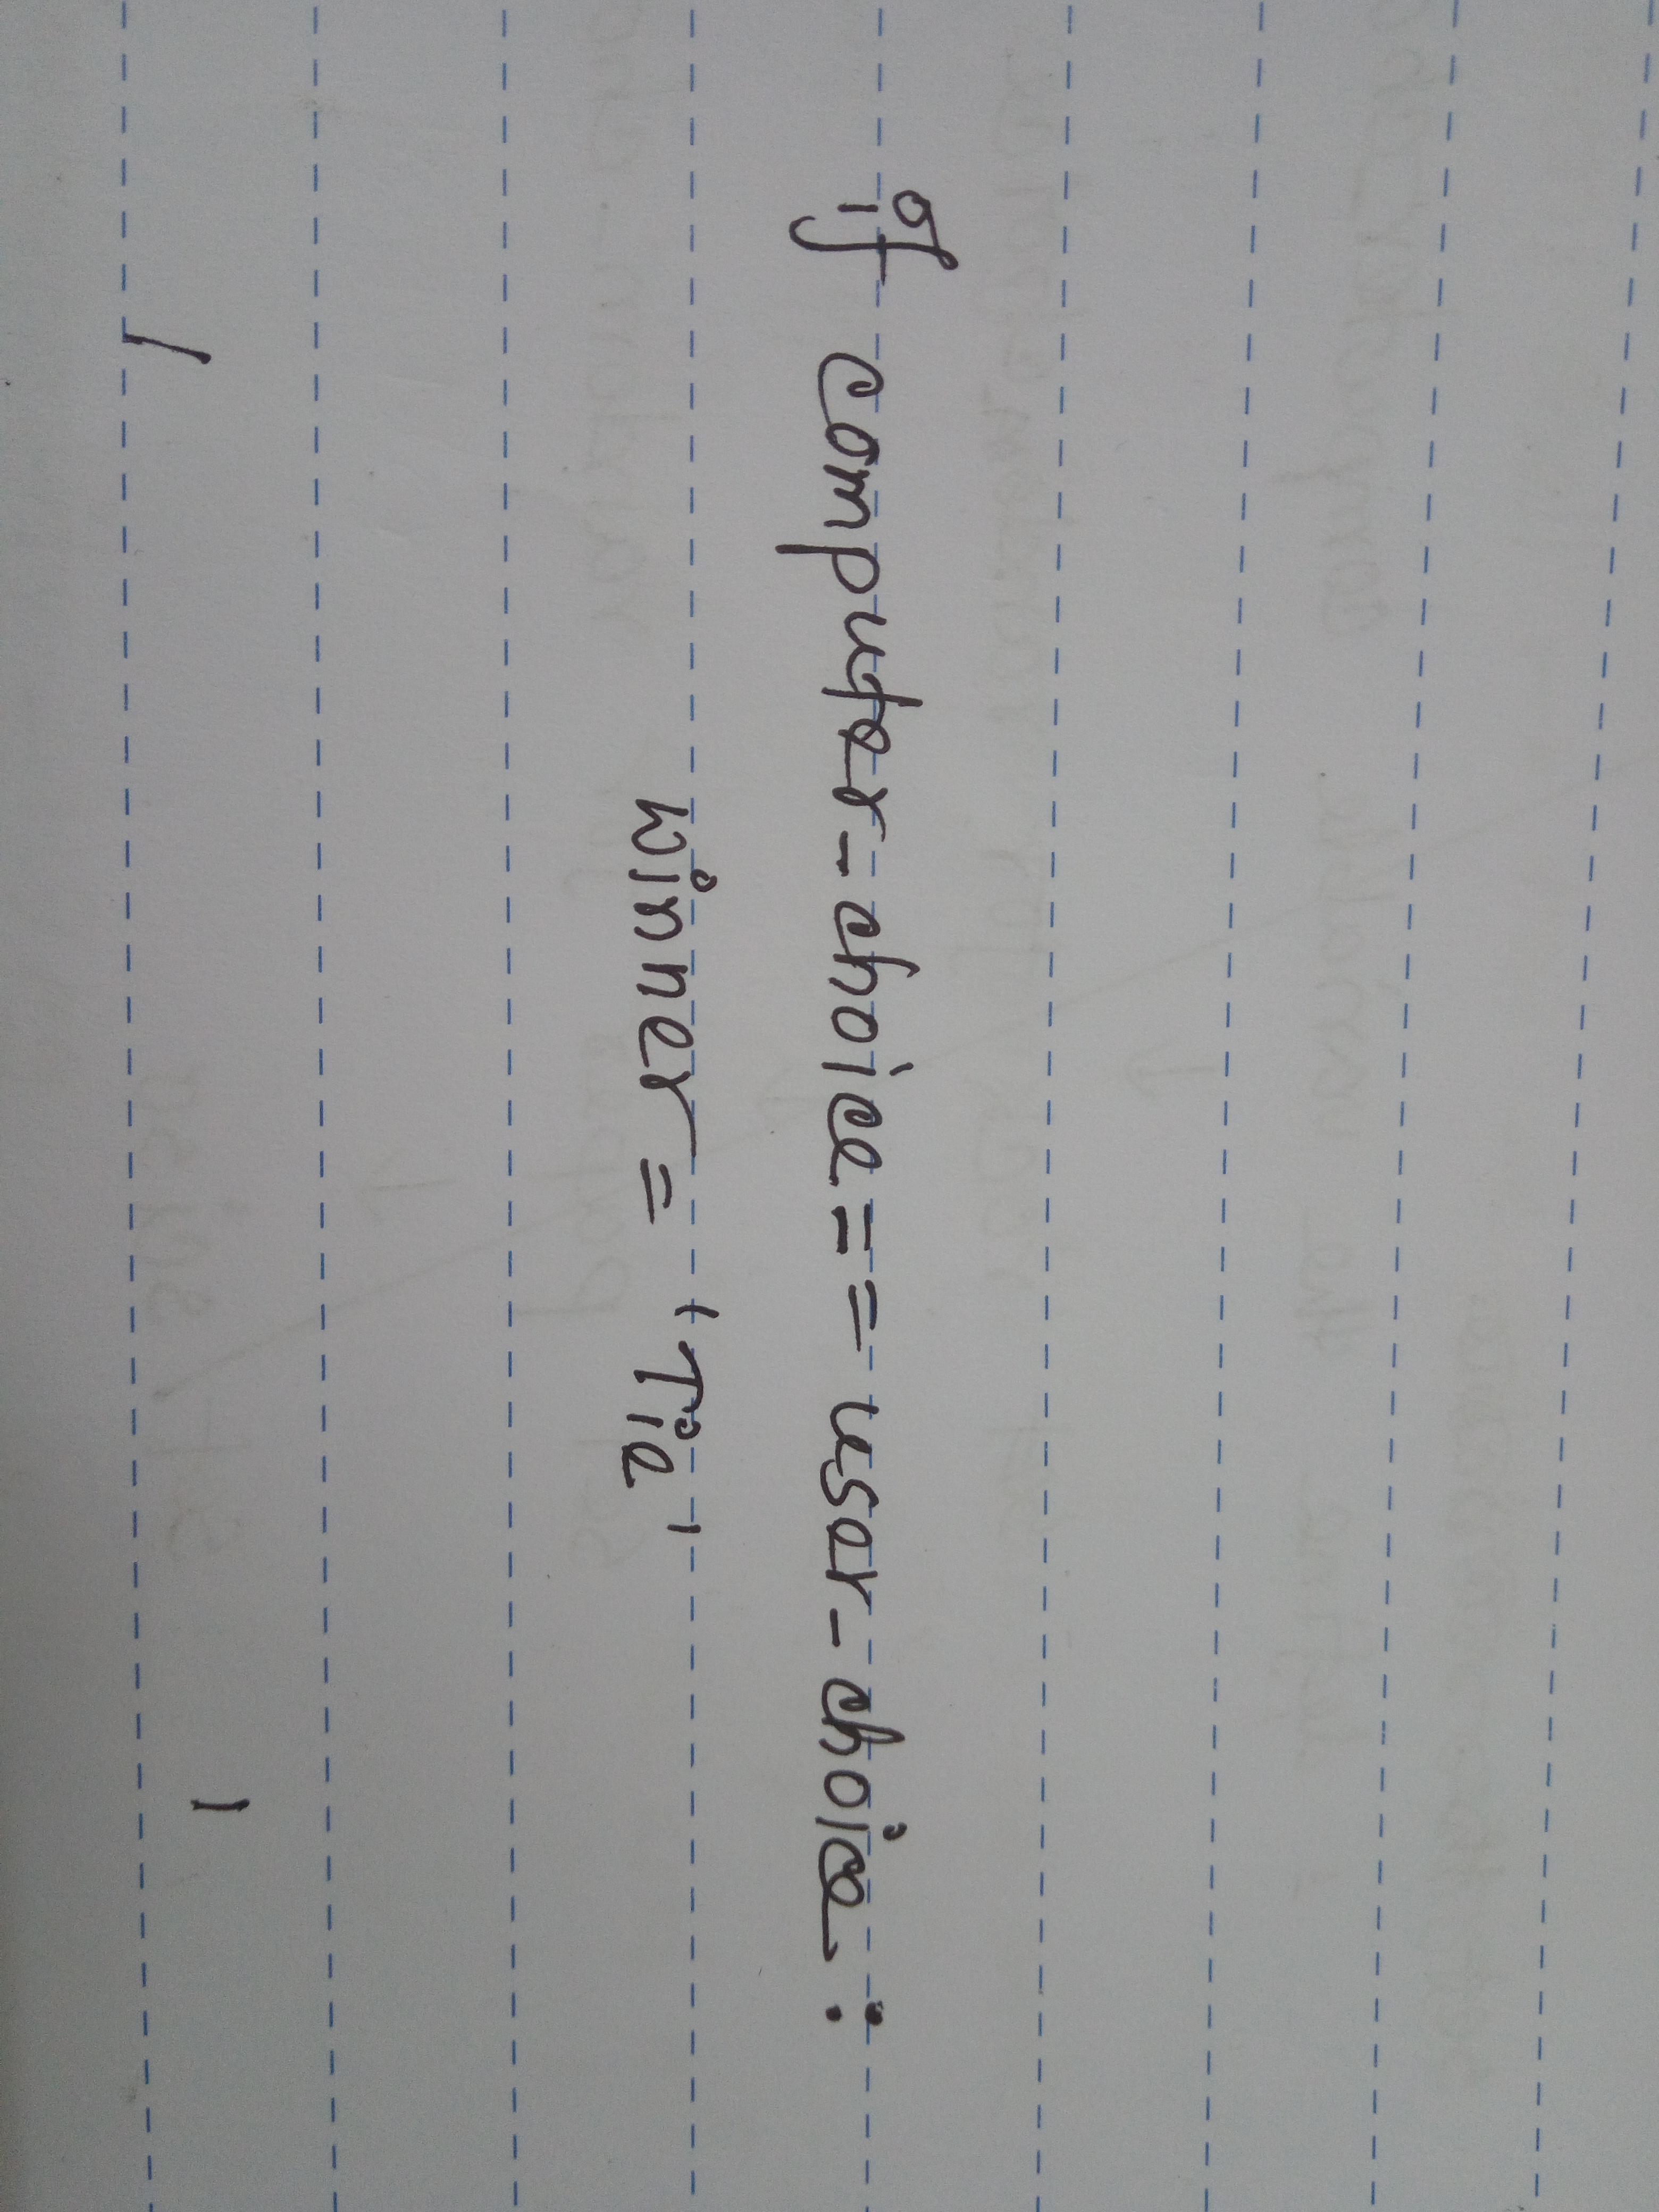 if computer_choice == user_choice :
winner = 'Tie'